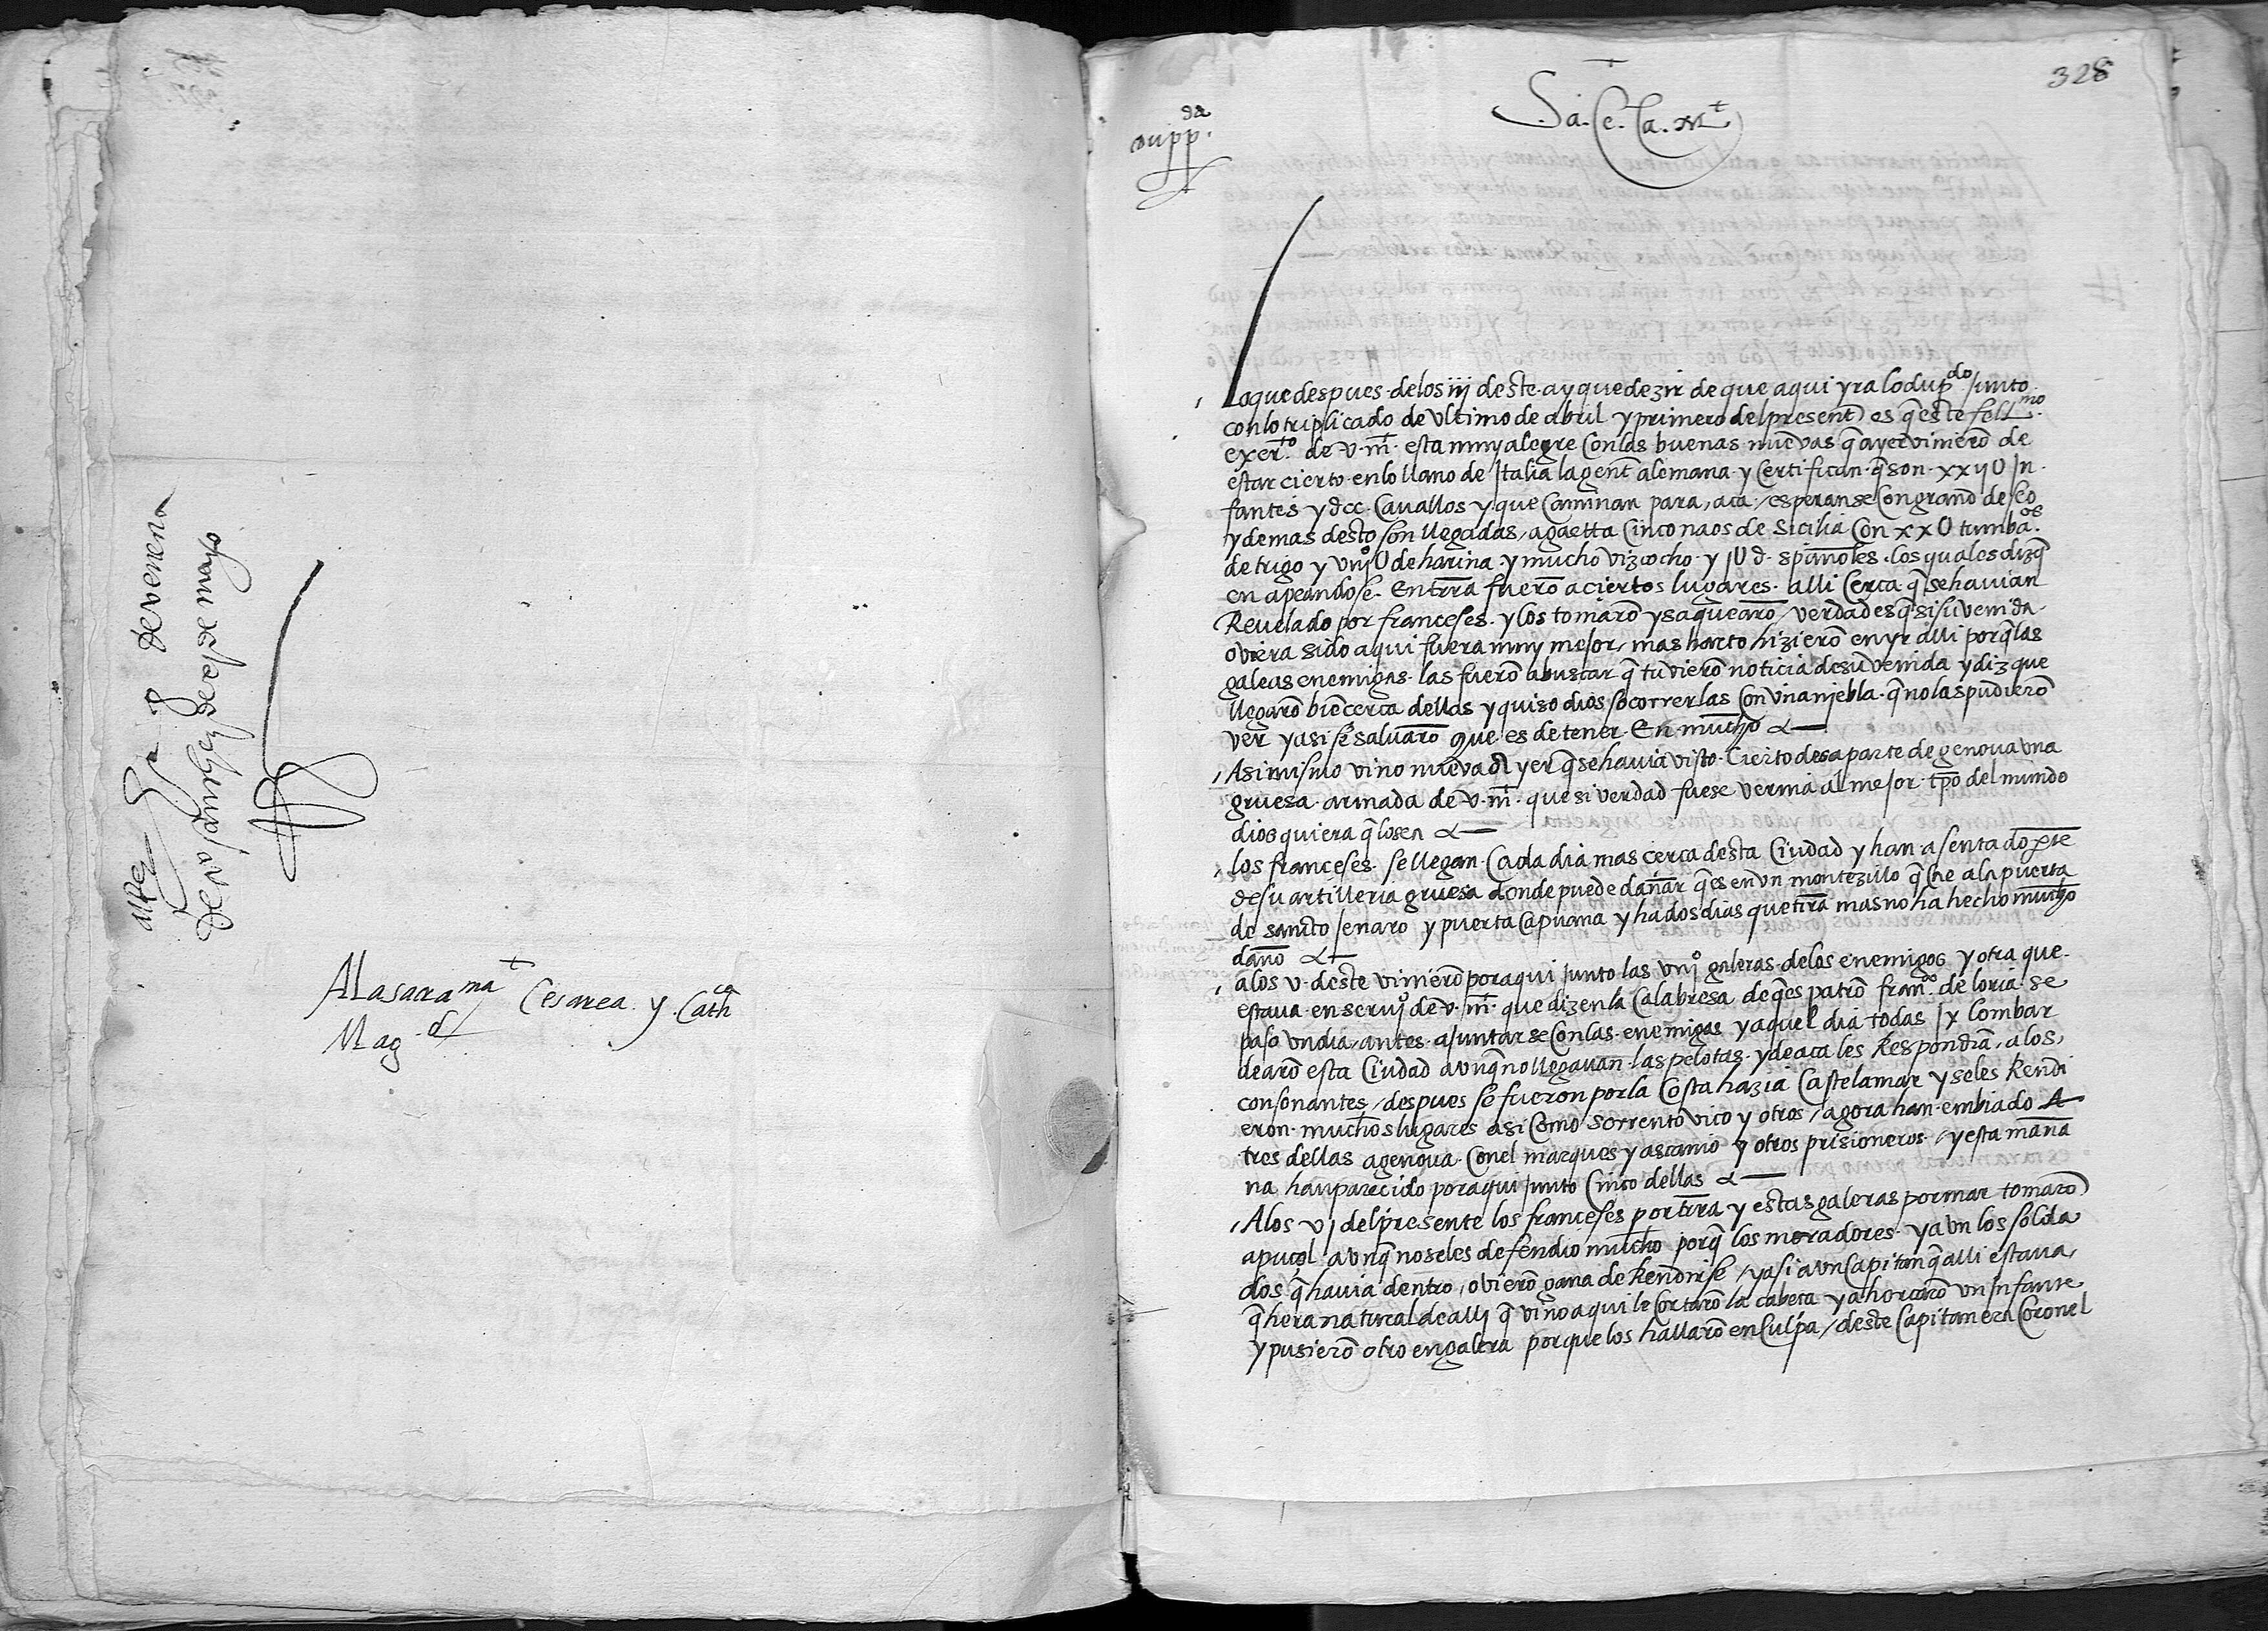 al Rey
de venereo
de napoles xij de mayo
A la sacra ma t Cesarea y Cath ca
Mag d
328
dupp. da
S. a. Ce. Ca. M t
Lo que despues de los iij deste ay que dezir de que aqui yra lo dup do Junto
con lo triplicado de vltimo de abril y primero del present es q̄ este fell mo
exerto de v. mt esta muy alegre con las buenas nuevas q̄ ayer vinierō de
estar cierto en lo llano de Italia la gent alemana y Certifican q̄ son xxijU In
fantes y dcc Cavallos y que Caminan para aca esperanse Con grand deseo
y demas desto son llegadas a gaetta Cinco naos de Sicilia Con xxU tumbaos
de trigo y viijoU de harina y mucho vizcocho y jU d spañoles los quales dizq̄
en apeandose En trra fuerō a ciertos lugares alli Cerca q̄ se havian
Revelado por franceses y los tomarō y saquearō verdad es q̄ si su venida
oviera sido aqui fuera muy mejor mas harto hizierō en yr alli porq̄ las
galeas enemigas las fuerō a buscar q̄ tuvierō noticia de su venida y diz que
llegarō biē cerca dellas y quiso dios socorrerlas Con vna niebla q̄ no las pudierō
ver y asi se salvarō que es de tener En mucho
Asi mismo vino nueva ayer q̄ se havia visto Cierto desa parte de genova vna
gruesa armada de v. mt que si verdad fuese vernia al mejor tpo del mundo
dios quiera q̄ lo sea
los franceses se llegan Cada dia mas cerca desta Ciudad y han asentado pte
de su artilleria gruesa donde puede dañar q̄ es en vn montezillo q̄ Cae a la puerta
de sancto Jenaro y puerta Capuana y ha dos dias que tira mas no ha hecho mucho
daño
a los v deste vinierō por aqui Junto las viijo galeras de los enemigos y otra que
estava en seruio de v. mt que dizen la Calabresa de q̄ es patrō franco de loria se
paso vn dia antes a Juntarse Con las enemigas y aquel dia todas Ix lombar
dearō esta Ciudad avnq̄ no llegavan las pelotas y de aca les Respondiā a los
consonantes despues se fueron por la Costa hazia Castelamar y se les Rendi
eron muchos lugares asi Como Sorrento vico y otros agora han embiado
tres dellas a genova Con el marques y ascanio y otros prisioneros y esta maña
na han parecido por aqui Junto Cinco dellas
A los vj del presente los franceses por trra y estas galeras por mar tomarō
a puçol avnq̄ no se les defendio mucho porq̄ los moradores y avn los solda
dos q̄ havia dentro ovierō gana de Rendirse y asi a vn Capitan q̄ alli estava
q̄ hera natural de allj q̄ vino aqui le Cortarō la cabeça y ahorcarō vn Infante
y pusierō otro en galera porque los hallarō en Culpa deste Capitan era Coronel